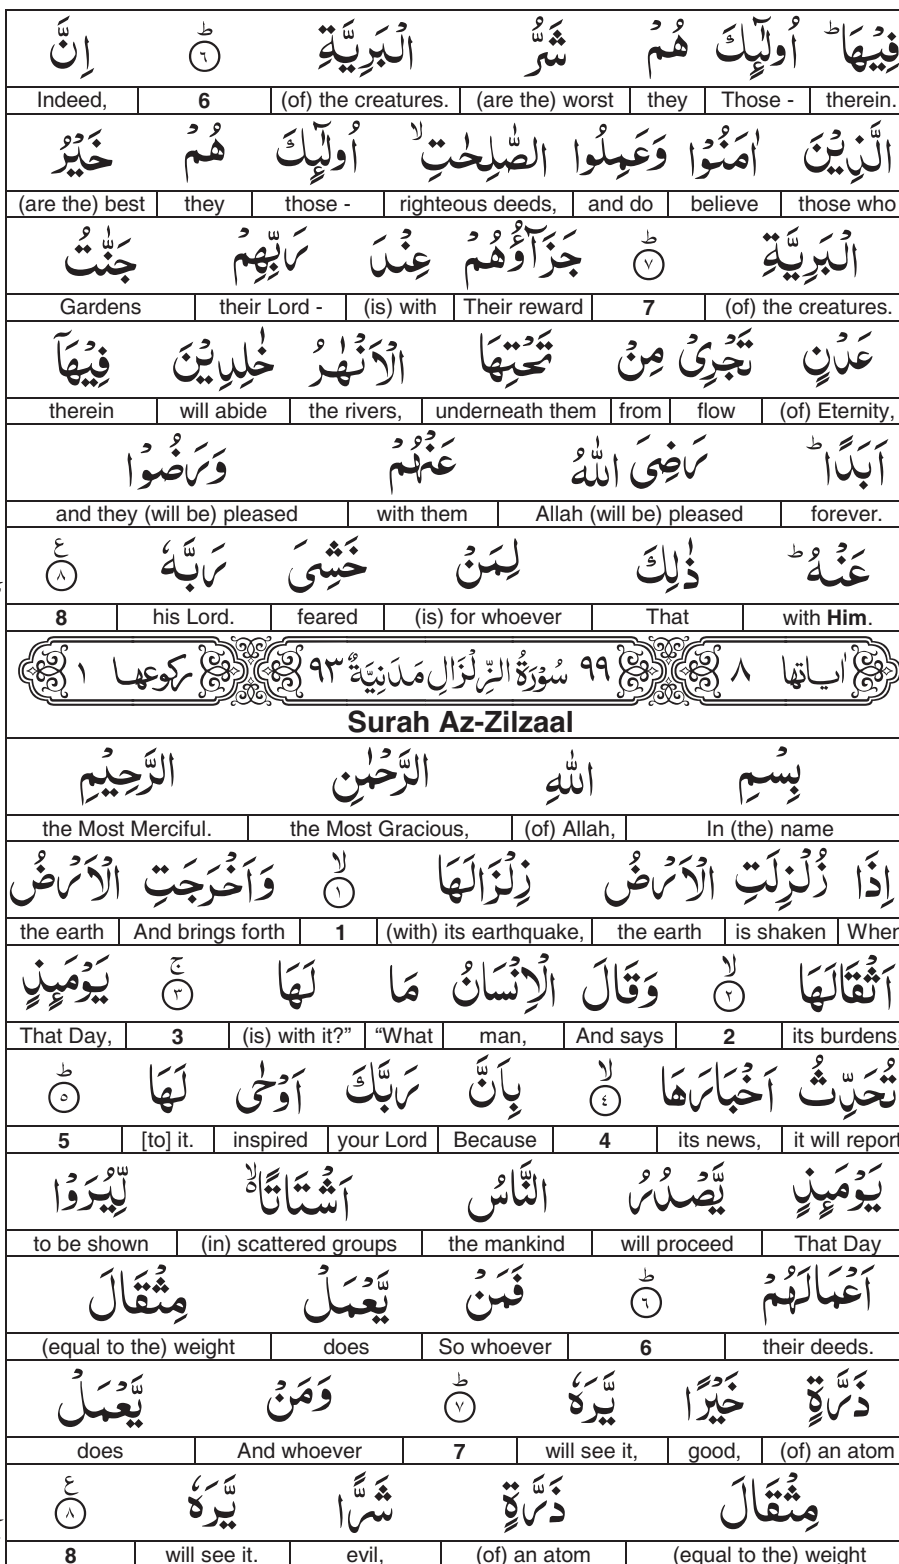 فِيْهَا ؕ اُولٰٓئِكَ هُمْ شَرُّ الْبَرِيَّةِ ؕ ٦ اِنَّ
therein. Those - they (are the) worst (of) the creatures. 6 Indeed,
الَّذِيْنَ اٰمَنُوْا وَعَمِلُوا الصّٰلِحٰتِ ۙ اُولٰٓئِكَ هُمْ خَيْرُ
those who believe and do righteous deeds, those - they (are the) best
الْبَرِيَّةِ ؕ ٧ جَزَآؤُهُمْ عِنْدَ رَبِّهِمْ جَنّٰتُ
(of) the creatures. 7 Their reward (is) with their Lord - Gardens
عَدْنٍ تَجْرِيْ مِنْ تَحْتِهَا الْاَنْهٰرُ خٰلِدِيْنَ فِيْهَآ
(of) Eternity, flow from underneath them the rivers, will abide therein
اَبَدًا ؕ رَضِيَ اللّٰهُ عَنْهُمْ وَرَضُوْا
forever. Allah (will be) pleased with them and they (will be) pleased
عَنْهُ ؕ ذٰلِكَ لِمَنْ خَشِيَ رَبَّهٗ ٨ ع
with Him. That (is) for whoever feared his Lord. 8
اٰياتها ٨ ٩٩ سُوْرَةُ الزِّلْزَالِ مَدَنِيَّةٌ ٩٣ ركوعها ١
Surah Az-Zilzaal
بِسْمِ اللّٰهِ الرَّحْمٰنِ الرَّحِيْمِ
In (the) name (of) Allah, the Most Gracious, the Most Merciful.
اِذَا زُلْزِلَتِ الْاَرْضُ زِلْزَالَهَا ۙ ١ وَاَخْرَجَتِ الْاَرْضُ
When is shaken the earth (with) its earthquake, 1 And brings forth the earth
اَثْقَالَهَا ۙ ٢ وَقَالَ الْاِنْسَانُ مَا لَهَا ۚ ٣ يَوْمَئِذٍ
its burdens. 2 And says man, “What (is) with it?” 3 That Day,
تُحَدِّثُ اَخْبَارَهَا ۙ ٤ بِاَنَّ رَبَّكَ اَوْحٰى لَهَا ؕ ٥
it will report its news, 4 Because your Lord inspired [to] it. 5
يَوْمَئِذٍ يَّصْدُرُ النَّاسُ اَشْتَاتًا ۙ لِّيُرَوْا
That Day will proceed the mankind (in) scattered groups to be shown
اَعْمَالَهُمْ ؕ ٦ فَمَنْ يَّعْمَلْ مِثْقَالَ
their deeds. 6 So whoever does (equal to the) weight
ذَرَّةٍ خَيْرًا يَّرَهٗ ؕ ٧ وَمَنْ يَّعْمَلْ
(of) an atom good, will see it, 7 And whoever does
مِثْقَالَ ذَرَّةٍ شَرًّا يَّرَهٗ ٨ ع
(equal to the) weight (of) an atom evil, will see it. 8